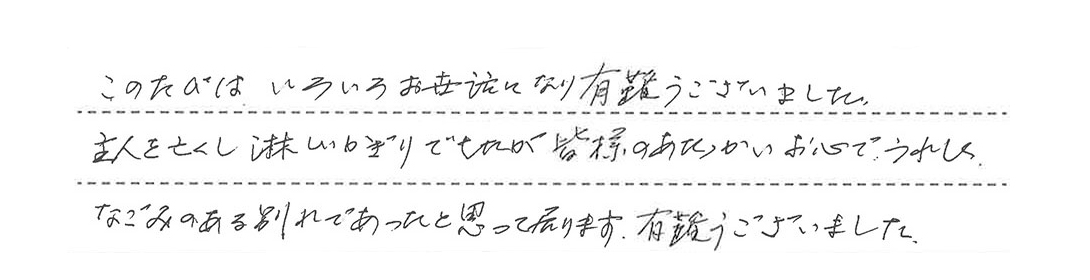 このたびは いろいろお世話になり有難うございました。
主人を亡くし淋しいかぎりでしたが皆様のあたゝかいお心で、うれしく、
なごみのある別れであったと思って居ります。有難うございました。